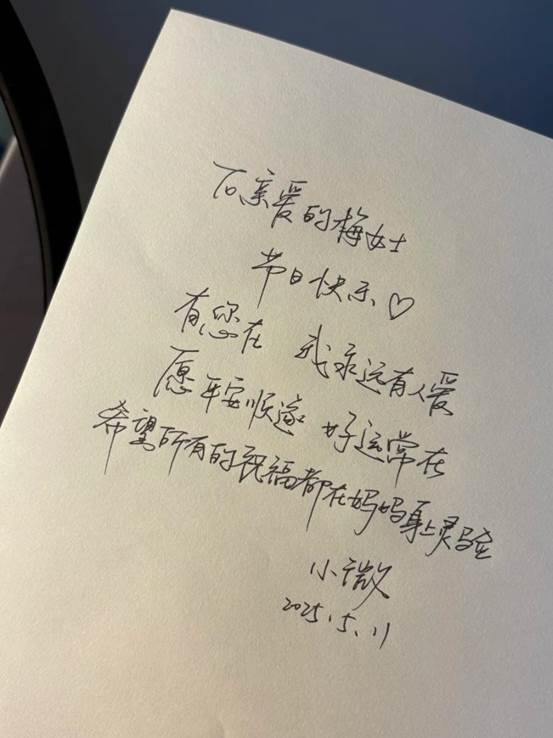 To亲爱的梅女士
节日快乐♡
有您在 我永远有人爱
愿平安顺遂 好运常在
希望所有的祝福都在妈妈身上灵验
小微
2025.5.11